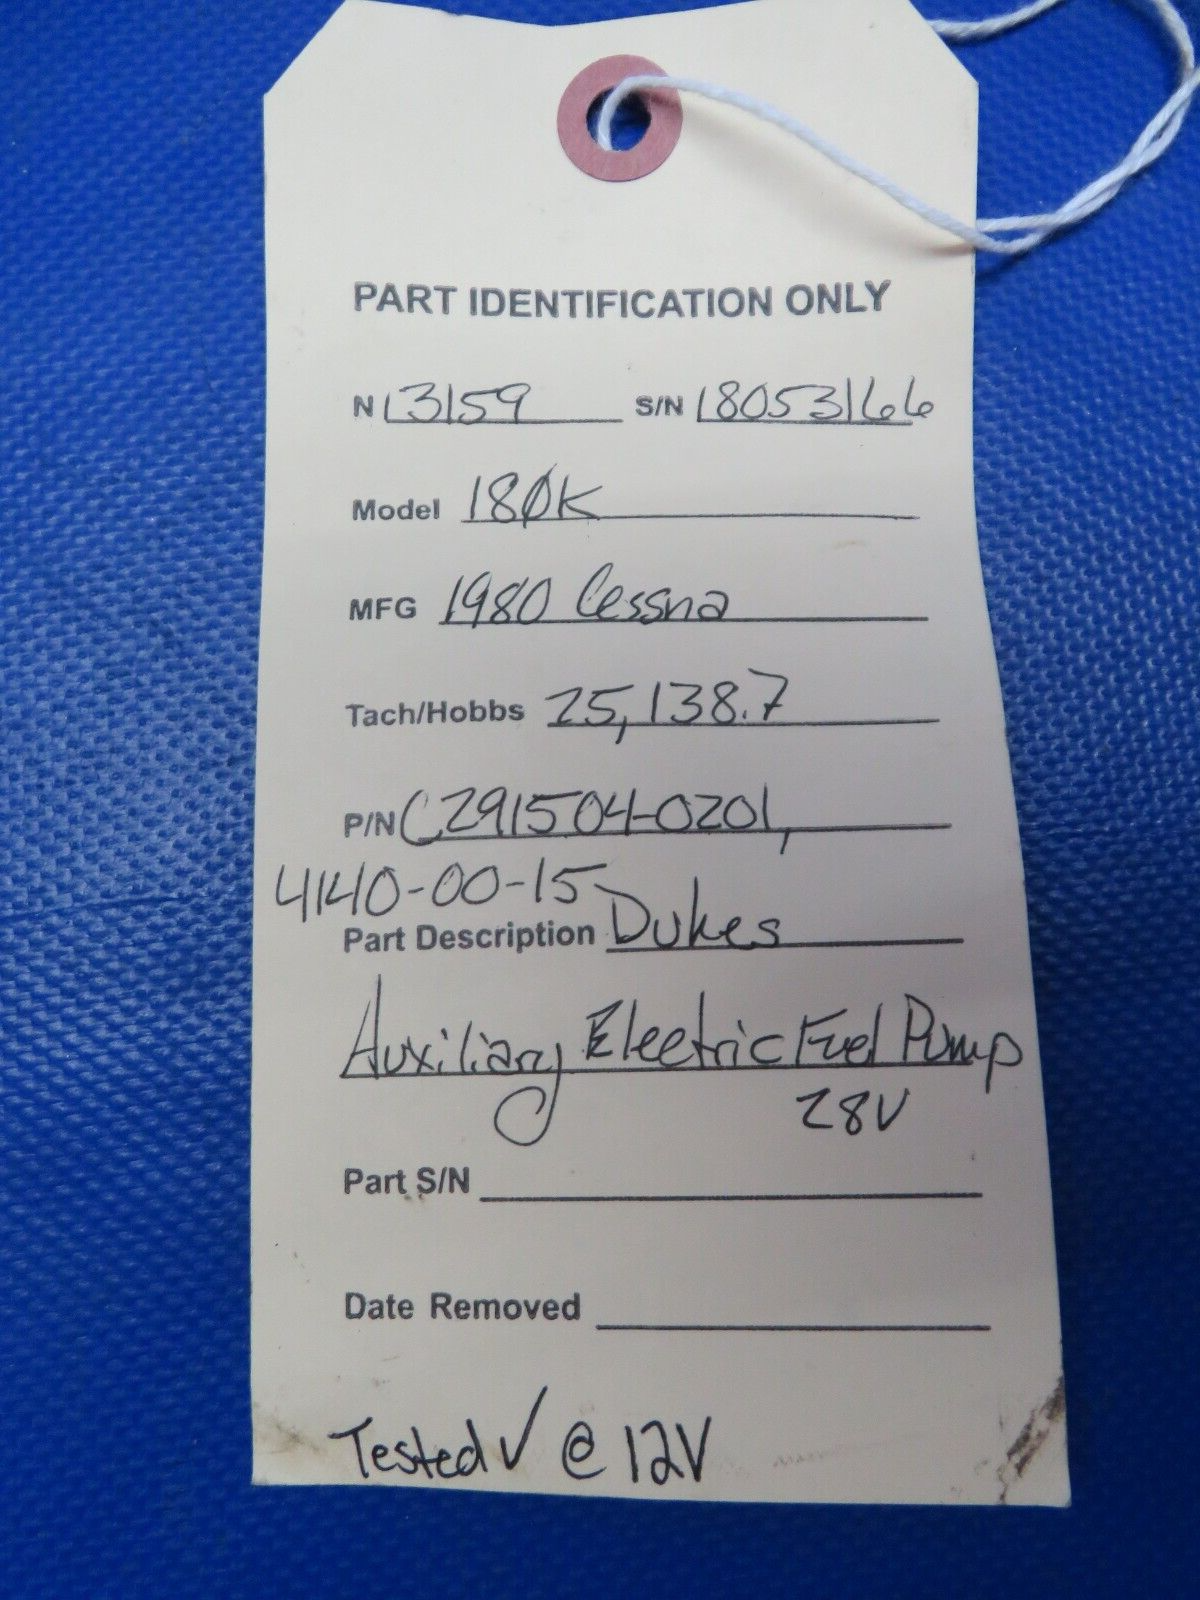 PART IDENTIFICATION ONLY
N 13159 S/N 18053166
Model 180K
MFG 1980 Cessna
Tach/Hobbs 25,138.7
P/N C291504-0201,
4140-00-15
Part Description Dukes
Auxiliary Electric Fuel Pump
28V
Part S/N
Date Removed
Tested ✓ @ 12V